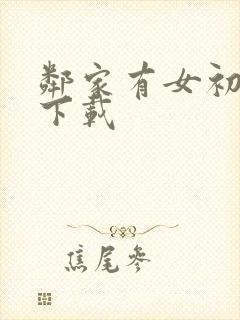 鄰家有女初
下載
焦尾參